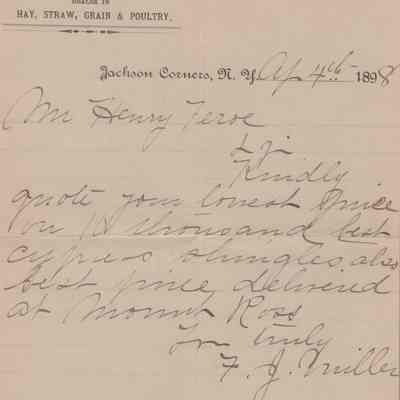 DEALER IN
HAY, STRAW, GRAIN & POULTRY.
Jackson Corners, N. Y. Ap 4th 1898
Mr Henry Teroe
Kindly
quote your lowest price
on 12 thousand best
cypres shingles, also
best price delivered
at Mount Ross
truly
F. J. Miller